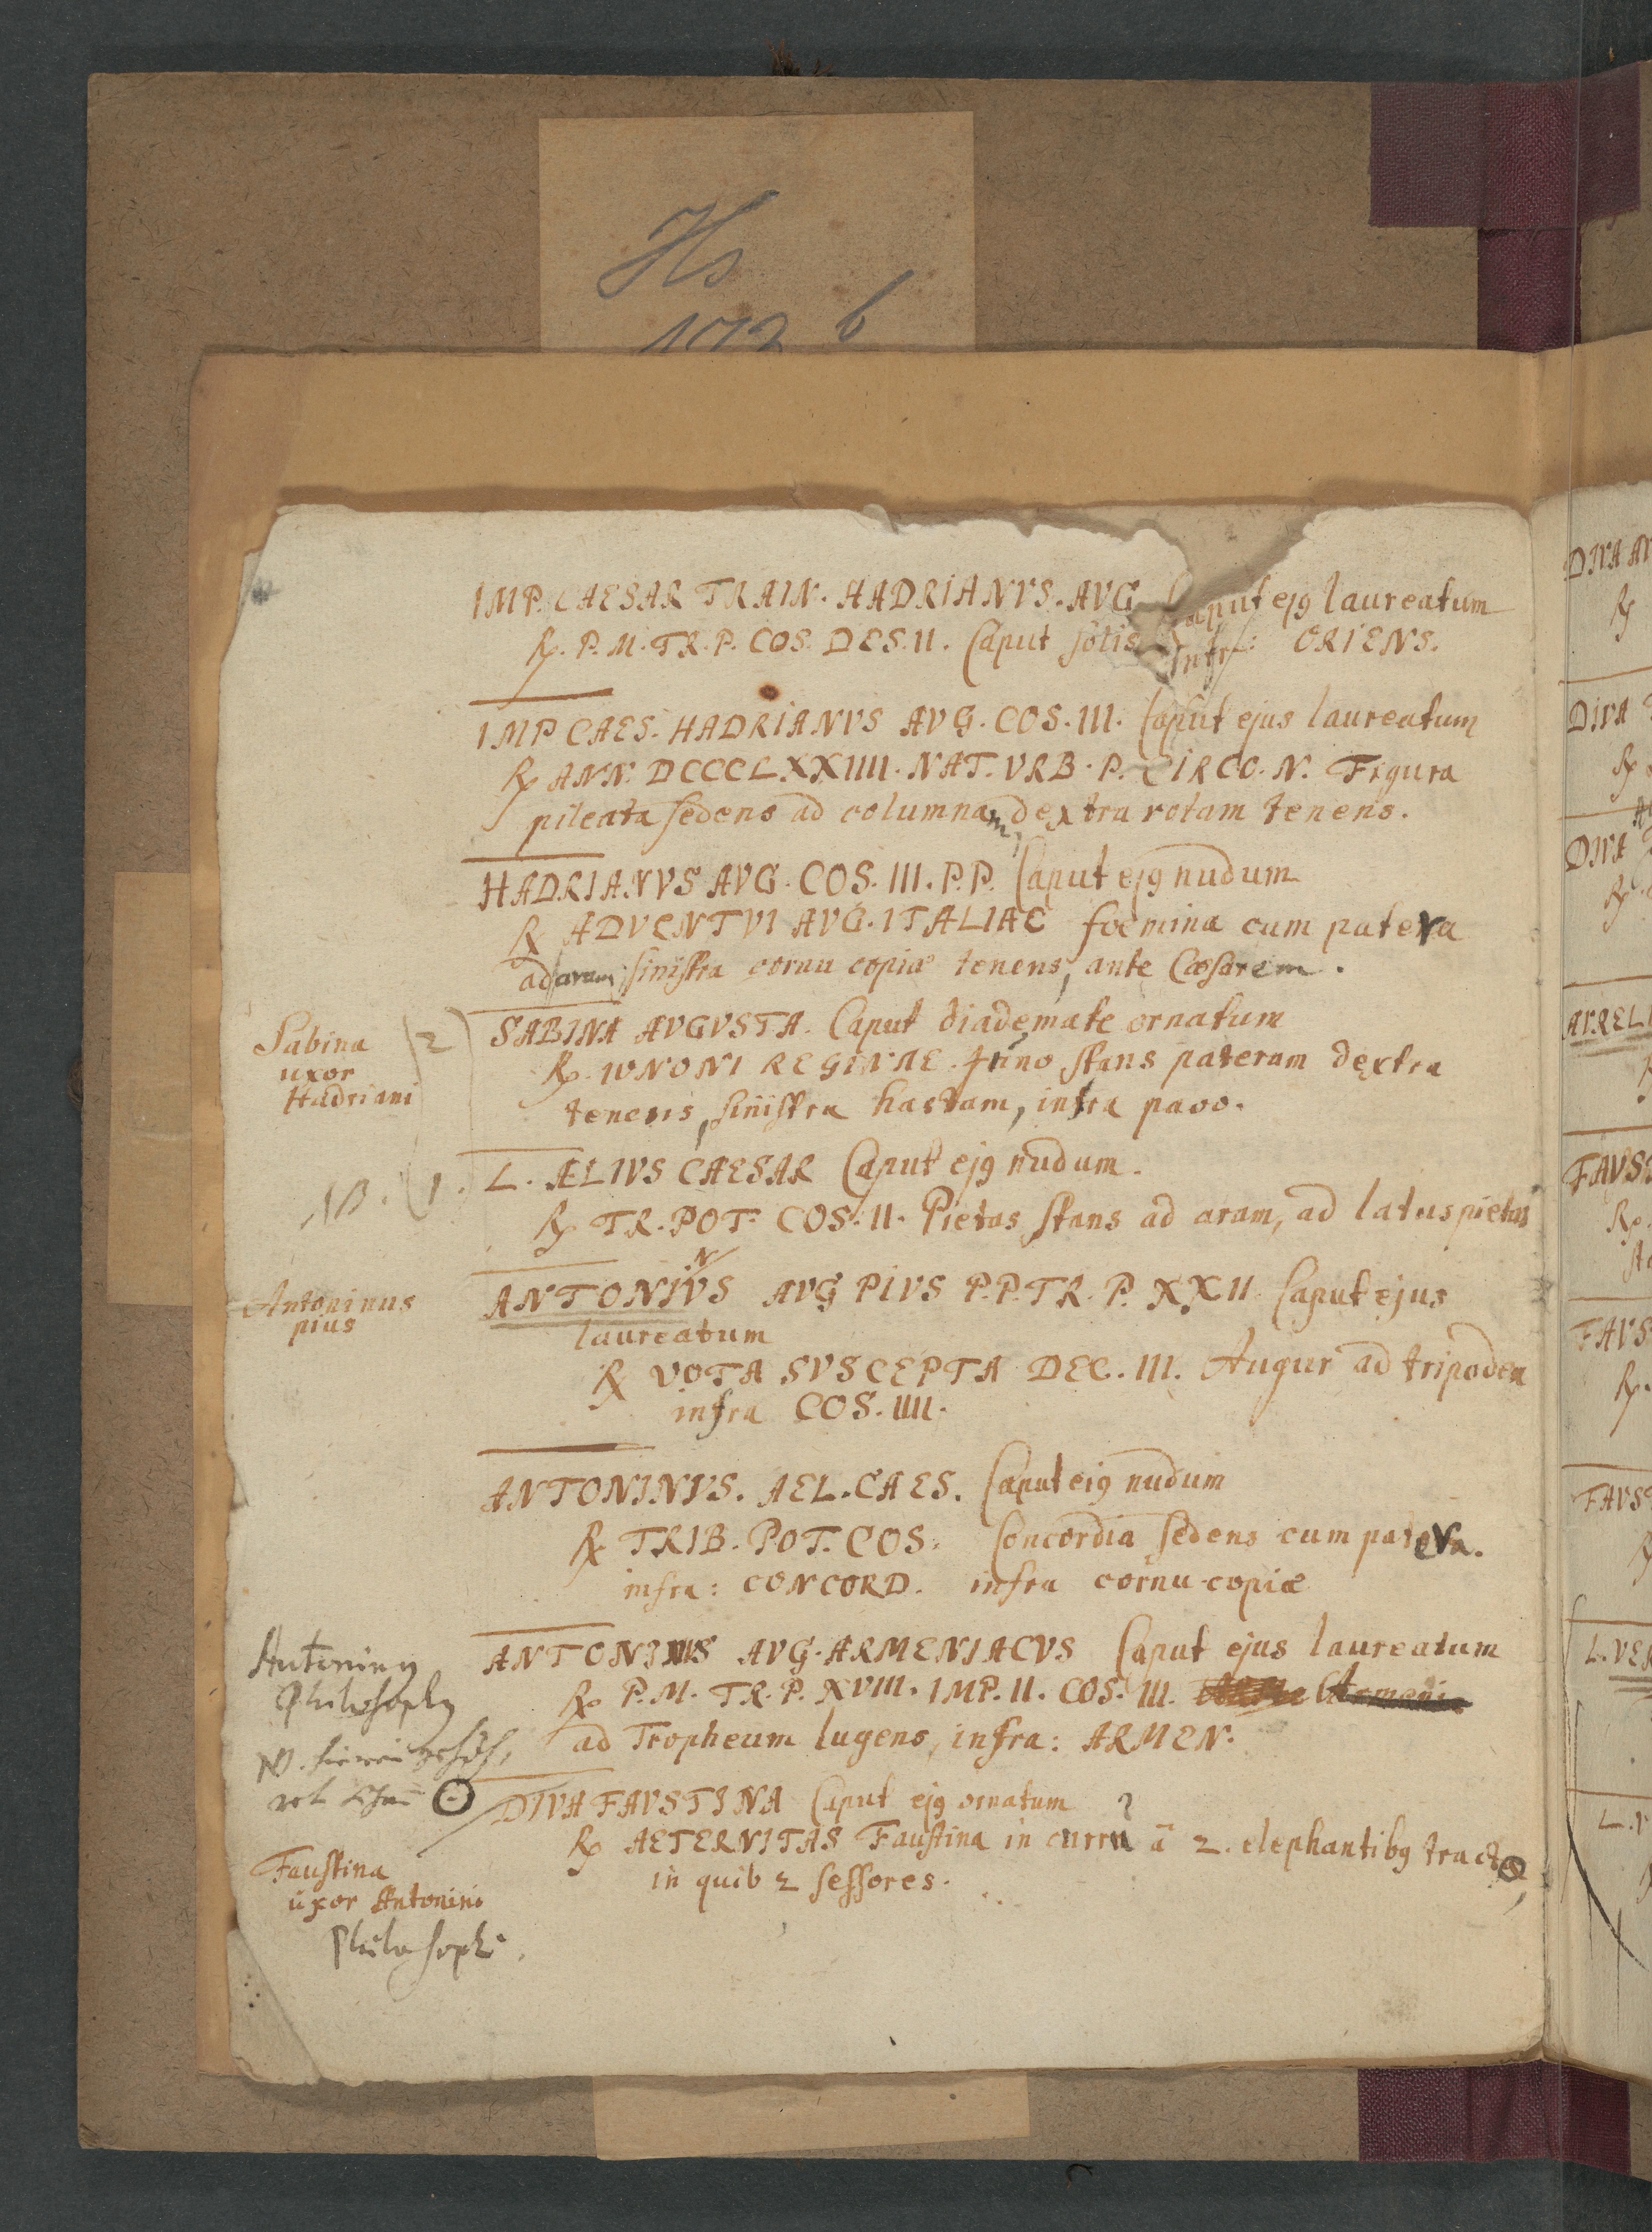 Hs
172 b
IMP. CAESAR TRAIN. HADRIANVS. AVG Caput ejꝯ laureatum
℞. P. M. TR. P. COS. DES. II. Caput solis Infr: ORIENS.
IMP CAES. HADRIANVS AVG. COS. III. Caput ejus laureatum
℞ ANN. DCCCLXXIIII. NAT. VRB. P. CIRCO. N. Figura
pileata sedens ad columnam, dextra rotam tenens.
HADRIANVS AVG. COS. III. P. P. Caput ejꝯ nudum
℞ ADVENTVI AVG. ITALIAE foemina cum patera
ad aram, sinistra cornu copiæ tenens, ante Cæsarem.
Sabina
uxor
Hadriani
2
SABINA AVGVSTA. Caput diademate ornatum
℞. IVNONI REGINAE. Juno stans pateram dextra
tenens, sinistra hastam, infra pavo.
NB. 1.
L. ÆLIVS CAESAR Caput ejꝯ nudum.
℞ TR. POT. COS. II. Pietas stans ad aram, ad latus pietas
Antoninus
pius
N
ANTONIVS AVG PIVS P. P. TR. P. XXII. Caput ejus
laureatum
℞ VOTA SVSCEPTA DEC. III. Augur ad tripodem
infra COS. IIII.
ANTONINVS. AEL. CAES. Caput eiꝯ nudum
℞ TRIB. POT. COS. Concordia sedens cum patera.
infra: CONCORD. infra cornu-copiæ
Antoninꝯ
Philosophꝯ
ANTONINVS AVG. ARMENIACVS Caput ejus laureatum
℞ P. M. TR. P. XVIII. IMP. II. COS. III. Armenia
ad Tropheum lugens, infra: ARMEN.
NB.
DIVA FAVSTINA Caput ejꝯ ornatum
℞ AETERNITAS Faustina in curru à 2. elephantibꝯ tracto
in quib 2 sessores.
Faustina
uxor Antonini
Philosophi.
DIVA
℞
DIVA
℞
DIVA
℞
AVREL
FAVS
℞.
FAVS
℞.
FAVST
L. VE
L. V